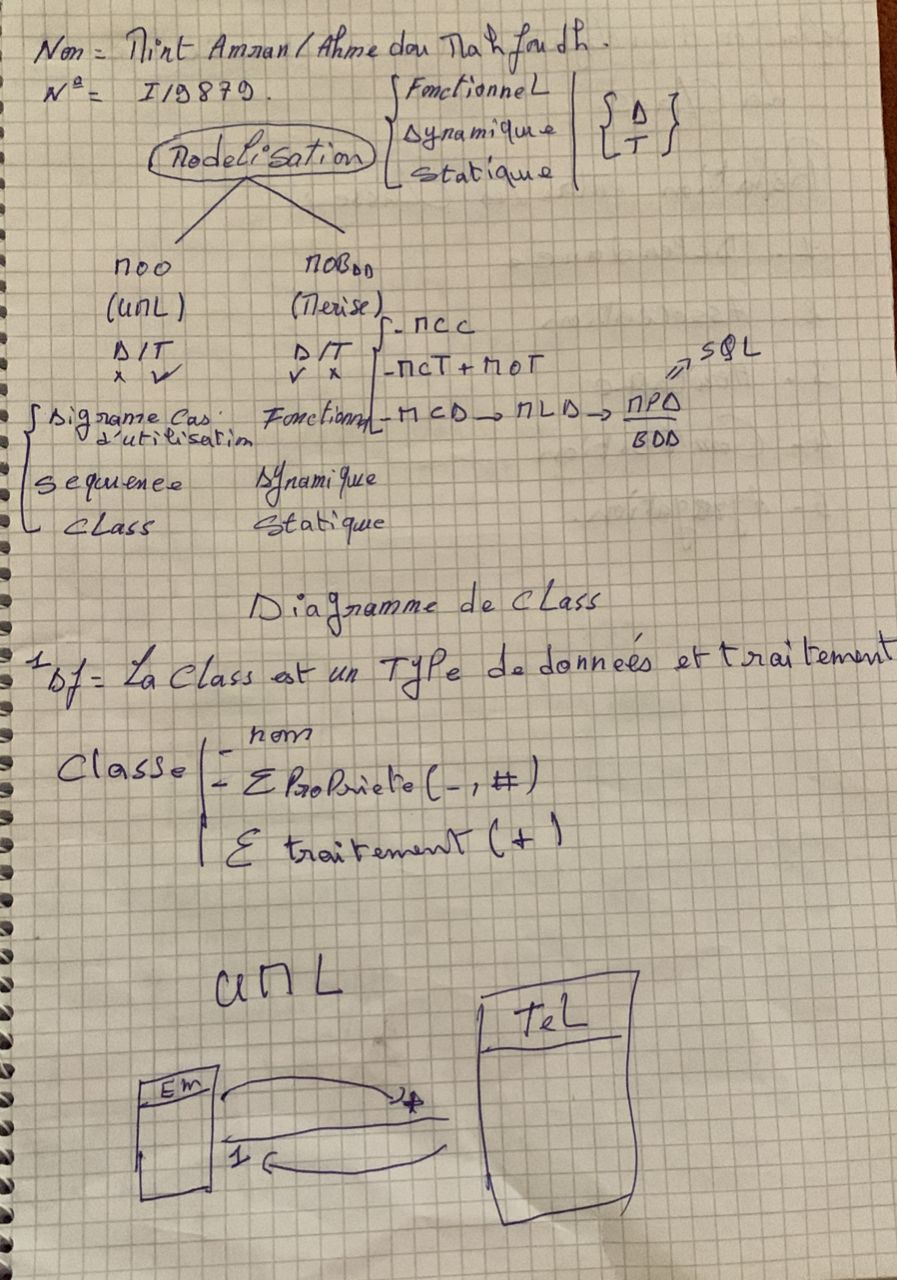 Nom = Mint Amnan / Ahme dou Mahfoudh.
N° = I19879.
{ Fonctionnel
Dynamique
Statique
{ D
T }
Modelisation
MOO
MOBDD
(UML)
(Merise)
D/T
D/T
x ✓
✓ x
- MCC
- MCT + MOT
- MCD → MLD → MPD ⇒ SQL
BDD
Digrame Cas d'utilisatim
Fonctionnel
Sequence
Dynamique
Class
Statique
Diagramme de Class
1 Df = La Class est un Type de données et traitement
Classe
- nom
- Σ Propriete (-, #)
Σ traitement (+)
UML
Em
TeL
*
1